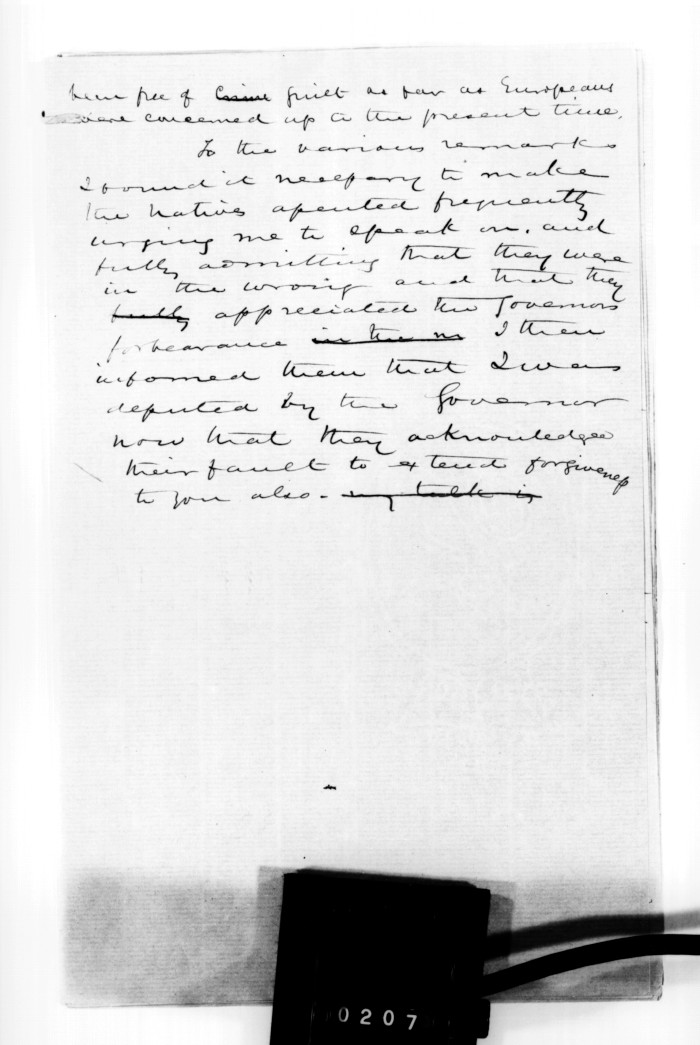 been free of ~~Crime~~ guilt as far as Europeans
were concerned up to the present time.
To the various remarks
I found it necessary to make
the natives assented frequently
urging me to speak on, and
fully admitting that they were
in the wrong and that they
~~fully~~ appreciated the Governors
forbearance ~~in the m~~ I then
informed them that I was
deputed by the Governor
now that they acknowledge
their fault to extend forgiveness
to you also. ~~my talk is~~
0207